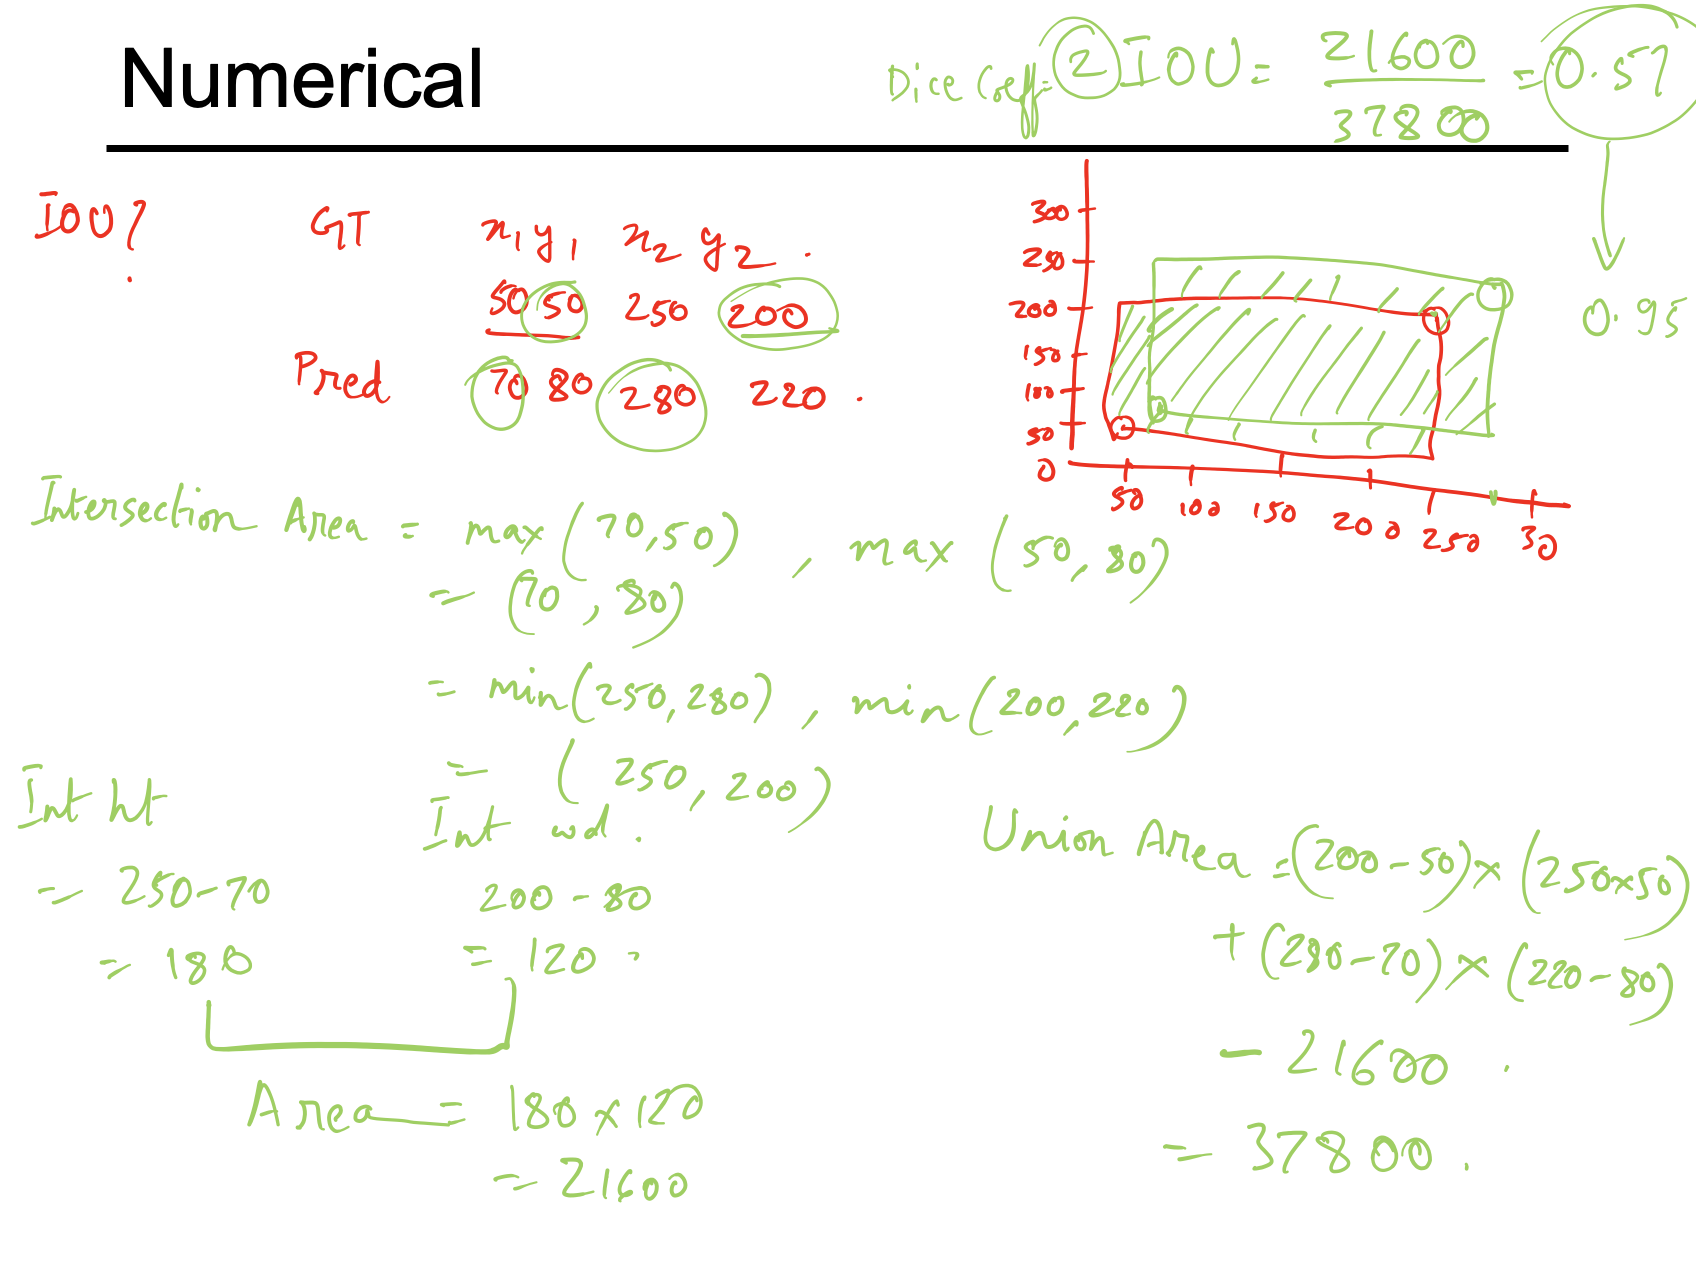 Numerical
Dice Coeff = 2 IOU = 21600 / 37800 = 0.57
0.95
IOU?
GT x1 y1 x2 y2 .
50 50 250 200
Pred 70 80 280 220 .
300
250
200
150
100
50
0
50 100 150 200 250 30
Intersection Area = max (70,50) , max (50, 80)
= (70 , 80)
= min(250,280) , min(200,220)
= (250, 200)
Int ht
= 250-70
= 180
Int wd.
200 - 80
= 120 .
Area = 180 x 120
= 21600
Union Area = (200-50) x (250x50)
+ (280-70) x (220-80)
- 21600 .
= 37800 .